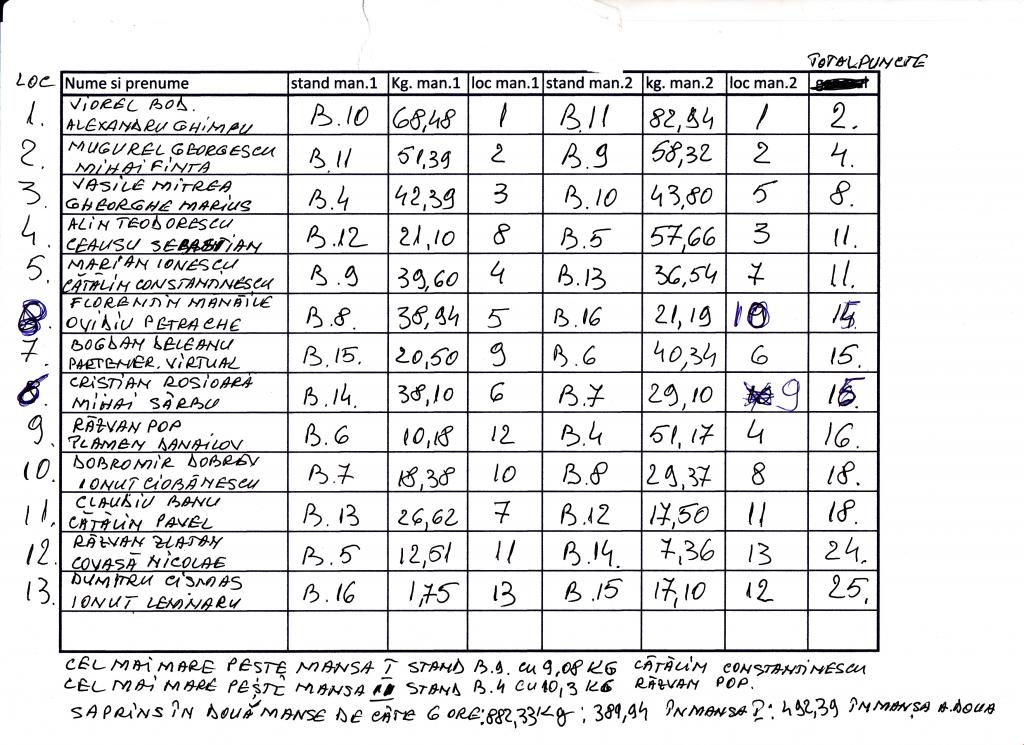 TOTAL PUNCTE
LOC Nume si prenume stand man.1 Kg. man.1 loc man.1 stand man.2 kg. man.2 loc man.2
1. VIOREL BOD. ALEXANDRU GHIMPU B.10 68,48 1 B.11 82,94 1 2.
2. MUGUREL GEORGESCU MIHAI FINTA B.11 51,39 2 B.9 58,32 2 4.
3. VASILE MITREA GHEORGHE MARIUS B.4 42,39 3 B.10 43,80 5 8.
4. ALIN TEODORESCU CEAUSU SEBASTIAN B.12 21,10 8 B.5 57,66 3 11.
5. MARIAN IONESCU CĂTĂLIN CONSTANTINESCU B.9 39,60 4 B.13 36,54 7 11.
FLORENTIN MANĂILE OVIDIU PETRACHE B.8. 38,94 5 B.16 21,19 10
7. BOGDAN DELEANU PARTENER. VIRTUAL B.15. 20,50 9 B.6 40,34 6 15.
CRISTIAN ROSIOARĂ MIHAI SÂRBU B.14. 38,10 6 B.7 29,10 9
9. RĂZVAN POP PLAMEN DANAILOV B.6 10,18 12 B.4 51,17 4 16.
10. DOBROMIR DOBREV IONUT CIOBĂNESCU B.7 18,38 10 B.8 29,37 8 18.
11. CLAUDIU BANU CĂTĂLIN PAVEL B.13 26,62 7 B.12 17,50 11 18.
12. RĂZVAN ZLATAN COVASĂ NICOLAE B.5 12,51 11 B.14. 7,36 13 24.
13. DUMITRU CISMAS IONUȚ LEMNARU B.16 1,75 13 B.15 17,10 12 25.
CEL MAI MARE PESTE MANSA I STAND B.9. CU 9,08 KG CĂTĂLIN CONSTANTINESCU
CEL MAI MARE PEȘTE MANSA II STAND B.4 CU 10,3 KG RĂZVAN POP.
SA PRINS ÎN DOUĂ MANSE DE CÂTE 6 ORE: 882,33 Kg; 389,94 ÎN MANSA I: 492,39 ÎN MANȘA A DOUA